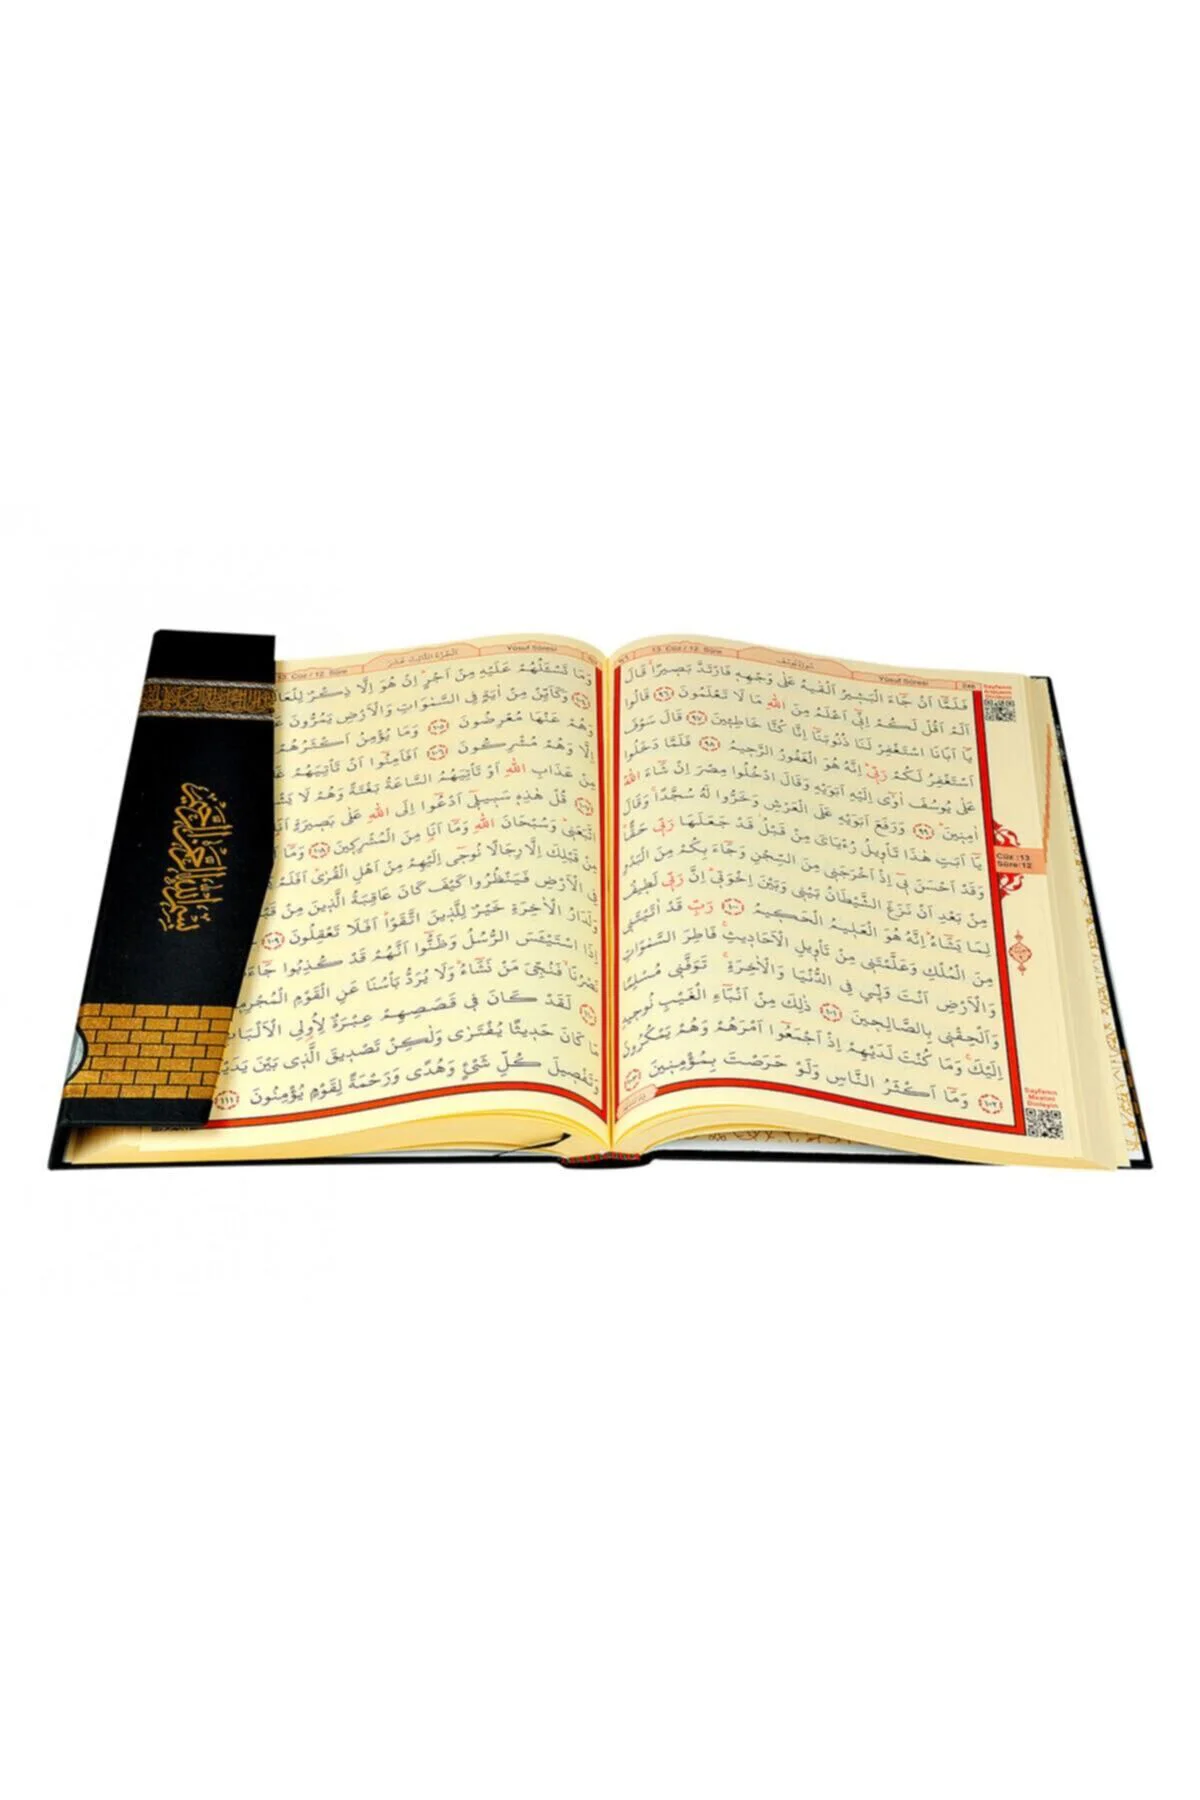 13. Cüz / 12. Sûre
سورة يوسف
Yûsuf Sûresi
246
Sayfanın
Arapçasını
Dinleyin
فَلَمَّٓا اَنْ جَٓاءَ الْبَش۪يرُ اَلْقٰيهُ عَلٰى وَجْهِه۪ فَارْتَدَّ بَص۪يرًاۚ قَالَ
اَلَمْ اَقُلْ لَكُمْ اِنّ۪ٓي اَعْلَمُ مِنَ اللّٰهِ مَا لَا تَعْلَمُونَ ﴿٩٦﴾ قَالُوا
يَٓا اَبَانَا اسْتَغْفِرْ لَنَا ذُنُوبَنَٓا اِنَّا كُنَّا خَاطِـ۪ٔينَ ﴿٩٧﴾ قَالَ سَوْفَ
اَسْتَغْفِرُ لَكُمْ رَبّ۪يۜ اِنَّهُ هُوَ الْغَفُورُ الرَّح۪يمُ ﴿٩٨﴾ فَلَمَّا دَخَلُوا
عَلٰى يُوسُفَ اٰوٰٓى اِلَيْهِ اَبَوَيْهِ وَقَالَ ادْخُلُوا مِصْرَ اِنْ شَٓاءَ اللّٰهُ
اٰمِن۪ينَۜ ﴿٩٩﴾ وَرَفَعَ اَبَوَيْهِ عَلَى الْعَرْشِ وَخَرُّوا لَهُ سُجَّدًاۚ وَقَالَ
يَٓا اَبَتِ هٰذَا تَأْو۪يلُ رُءْيَايَ مِنْ قَبْلُۘ قَدْ جَعَلَهَا رَبّ۪ي حَقًّاۜ
وَقَدْ اَحْسَنَ ب۪ٓي اِذْ اَخْرَجَن۪ي مِنَ السِّجْنِ وَجَٓاءَ بِكُمْ مِنَ الْبَدْوِ
مِنْ بَعْدِ اَنْ نَزَغَ الشَّيْطَانُ بَيْن۪ي وَبَيْنَ اِخْوَت۪يۜ اِنَّ رَبّ۪ي لَط۪يفٌ
لِمَا يَشَٓاءُۜ اِنَّهُ هُوَ الْعَل۪يمُ الْحَك۪يمُ ﴿١٠٠﴾ رَبِّ قَدْ اٰتَيْتَن۪ي
مِنَ الْمُلْكِ وَعَلَّمْتَن۪ي مِنْ تَأْو۪يلِ الْاَحَاد۪يثِۚ فَاطِرَ السَّمٰوَاتِ
وَالْاَرْضِ اَنْتَ وَلِيّ۪ي فِي الدُّنْيَا وَالْاٰخِرَةِۚ تَوَفَّن۪ي مُسْلِمًا
وَاَلْحِقْن۪ي بِالصَّالِح۪ينَ ﴿١٠١﴾ ذٰلِكَ مِنْ اَنْبَٓاءِ الْغَيْبِ نُوح۪يهِ
اِلَيْكَۚ وَمَا كُنْتَ لَدَيْهِمْ اِذْ اَجْمَعُٓوا اَمْرَهُمْ وَهُمْ يَمْكُرُونَ ﴿١٠٢﴾
وَمَٓا اَكْثَرُ النَّاسِ وَلَوْ حَرَصْتَ بِمُؤْمِن۪ينَ ﴿١٠٣﴾
Cüz :13
Sûre:12
Sayfanın
Mealini
Dinleyin
13. Cüz / 12. Sûre
الجزء الثالث عشر
Yûsuf Sûresi
وَمَا تَسْـَٔلُهُمْ عَلَيْهِ مِنْ اَجْرٍۜ اِنْ هُوَ اِلَّا ذِكْرٌ لِلْعَا
﴿١٠٤﴾ وَكَاَيِّنْ مِنْ اٰيَةٍ فِي السَّمٰوَاتِ وَالْاَرْضِ يَمُرُّونَ
وَهُمْ عَنْهَا مُعْرِضُونَ ﴿١٠٥﴾ وَمَا يُؤْمِنُ اَكْثَرُهُمْ
اِلَّا وَهُمْ مُشْرِكُونَ ﴿١٠٦﴾ اَفَاَمِنُٓوا اَنْ تَأْتِيَهُمْ
مِنْ عَذَابِ اللّٰهِ اَوْ تَأْتِيَهُمُ السَّاعَةُ بَغْتَةً وَهُمْ لَا
﴿١٠٧﴾ قُلْ هٰذِه۪ سَب۪يل۪ٓي اَدْعُٓوا اِلَى اللّٰهِ عَلٰى بَص۪يرَةٍ
اتَّبَعَن۪يۜ وَسُبْحَانَ اللّٰهِ وَمَٓا اَنَا۬ مِنَ الْمُشْرِك۪ينَ ﴿١٠٨﴾ وَمَٓا
مِنْ قَبْلِكَ اِلَّا رِجَالًا نُوح۪ٓي اِلَيْهِمْ مِنْ اَهْلِ الْقُرٰىۜ اَفَلَمْ
فِي الْاَرْضِ فَيَنْظُرُوا كَيْفَ كَانَ عَاقِبَةُ الَّذ۪ينَ مِنْ
وَلَدَارُ الْاٰخِرَةِ خَيْرٌ لِلَّذ۪ينَ اتَّقَوْاۜ اَفَلَا تَعْقِلُونَ ﴿١٠٩﴾
اِذَا اسْتَيْـَٔسَ الرُّسُلُ وَظَنُّٓوا اَنَّهُمْ قَدْ كُذِبُوا
نَصْرُنَاۙ فَنُجِّيَ مَنْ نَشَٓاءُۜ وَلَا يُرَدُّ بَأْسُنَا عَنِ الْقَوْمِ الْمُجْرِم۪
﴿١١٠﴾ لَقَدْ كَانَ ف۪ي قَصَصِهِمْ عِبْرَةٌ لِاُو۬لِي الْاَلْبَا
مَا كَانَ حَد۪يثًا يُفْتَرٰى وَلٰكِنْ تَصْد۪يقَ الَّذ۪ي بَيْنَ يَدَيْ
وَتَفْص۪يلَ كُلِّ شَيْءٍ وَهُدًى وَرَحْمَةً لِقَوْمٍ يُؤْمِنُونَ ﴿١١١﴾
بسم الله الرحمن الرحيم